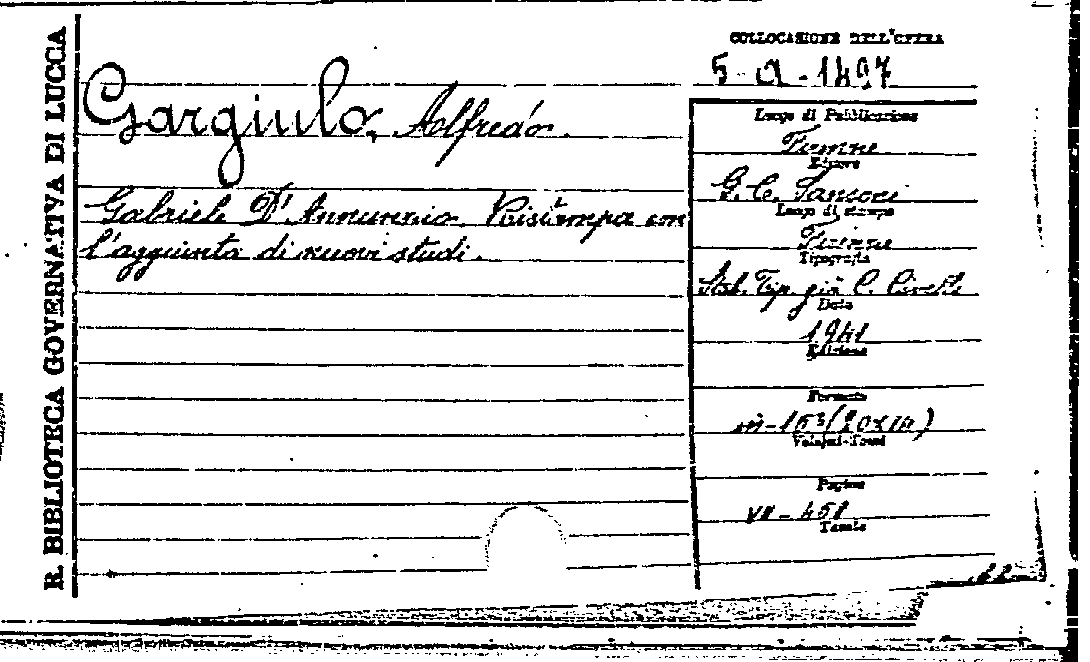 R. BIBLIOTECA GOVERNATIVA DI LUCCA
COLLOCAZIONE DELL'OPERA
5-a-1497
Gargiulo, Alfredo.
Gabriele D'Annunzio. Ristampa con
l'aggiunta di nuovi studi.
Luogo di Pubblicazione
Firenze
Editore
G. C. Sansoni
Luogo di stampa
Firenze
Tipografia
Stab. Tip. già C. Civelli
Data
1941
Edizione
Formato
in-16°(20x14)
Volumi-Tomi
Pagine
VII-451
Tavole